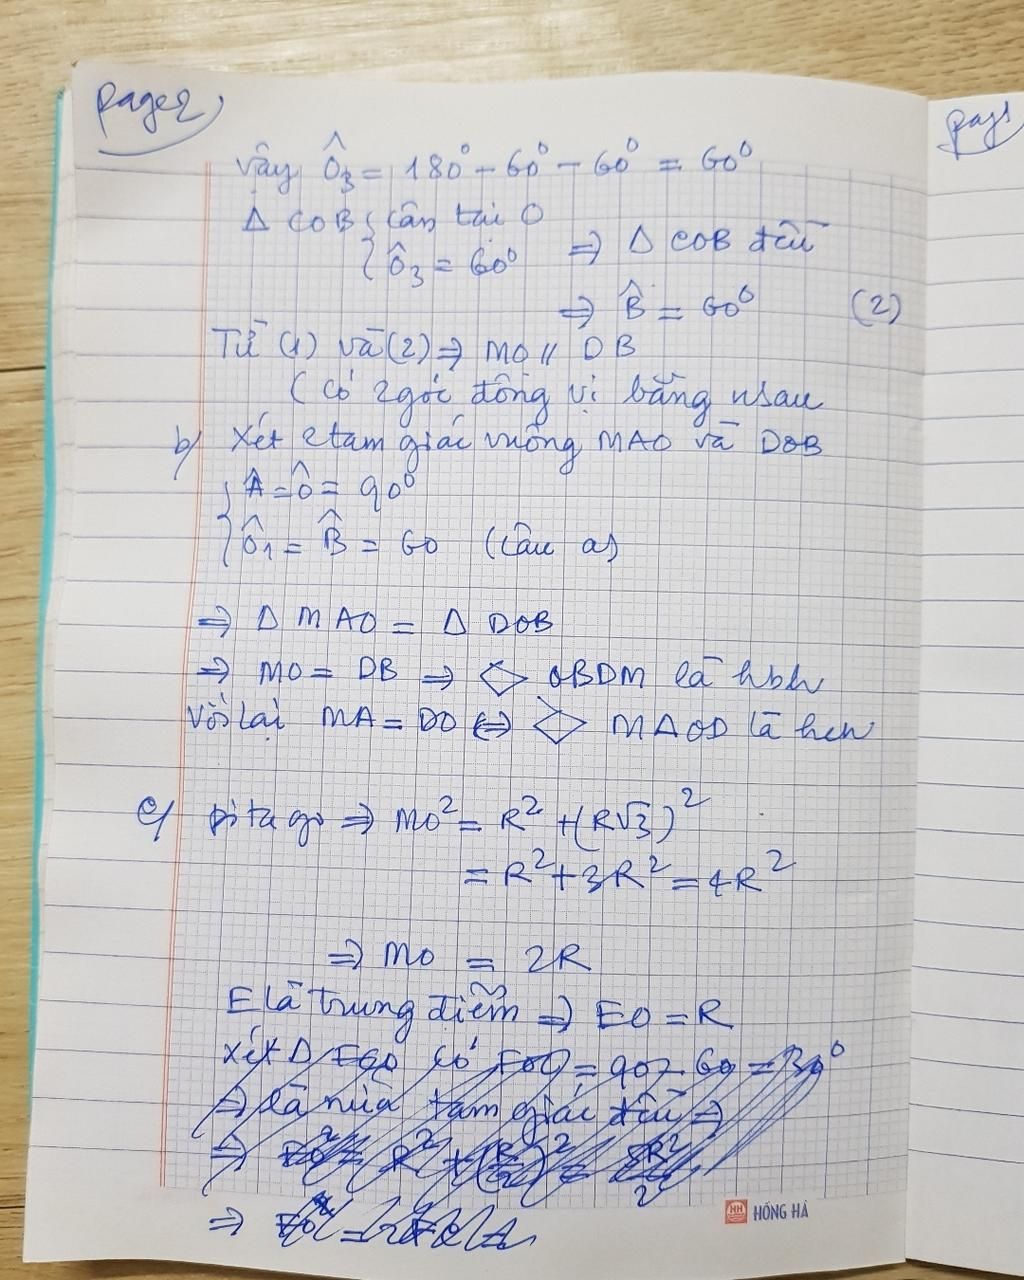 page 2
Vậy Ô₃ = 180⁰ - 60⁰ - 60⁰ = 60⁰
Δ COB { Cân tại O
Ô₃ = 60⁰ ⇒ Δ COB đều
⇒ B̂ = 60⁰ (2)
Từ (1) và (2) ⇒ MO // DB
(Có 2 góc đồng vị bằng nhau
b) Xét 2 tam giác vuông MAO và DOB
{ Â = Ô = 90⁰
Ô₁ = B̂ = 60 (câu a)
⇒ Δ MAO = Δ DOB
⇒ MO = DB ⇒ ▱ OBDM là hbh
Với lại MA = DO ⇔ ▱ MAOD là hcn
c) pitago ⇒ MO² = R² + (R√3)²
= R² + 3R² = 4R²
⇒ MO = 2R
E là trung điểm ⇒ EO = R
Xét Δ EGO có = 90 - 60 = 30⁰
⇒ là nửa tam giác đều ⇒
HH HỒNG HÀ
page 1